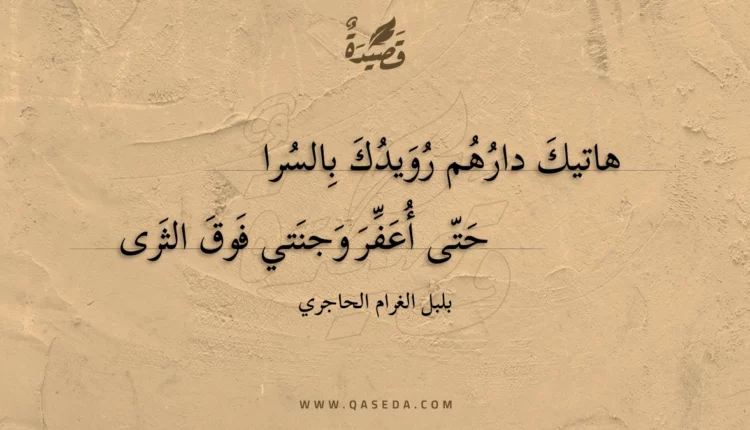 قَصِيدَةٌ
هاتيكَ دارُهُم رُوَيدُكَ بِالسُرا
حَتّى أُعَفِّرَ وَجنَتي فَوقَ الثَرى
بلبل الغرام الحاجري
WWW.QASEDA.COM